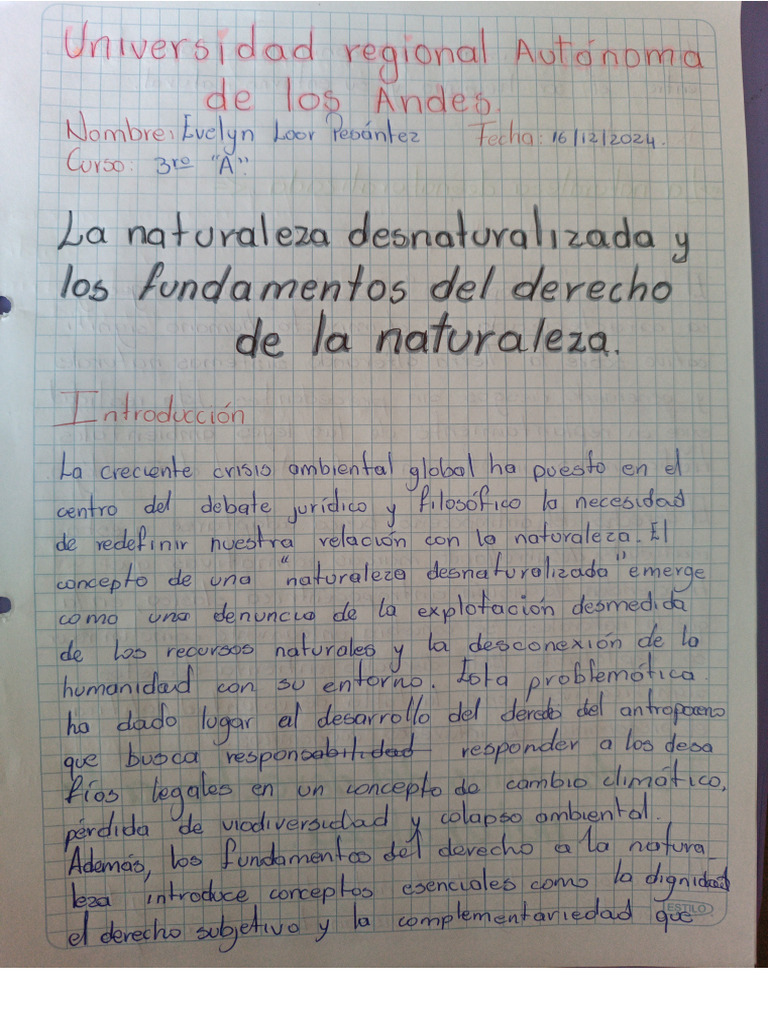 Universidad regional Autónoma
de los Andes.
Nombre: Evelyn Loor Pesántez Fecha: 16/12/2024.
Curso: 3ro "A".
La naturaleza desnaturalizada y
los fundamentos del derecho
de la naturaleza.
Introducción
La creciente crisis ambiental global ha puesto en el
centro del debate jurídico y filosófico la necesidad
de redefinir nuestra relación con la naturaleza. El
concepto de una "naturaleza desnaturalizada" emerge
como una denuncia de la explotación desmedida
de los recursos naturales y la desconexión de la
humanidad con su entorno. Esta problemática
ha dado lugar al desarrollo del derecho del antropoceno
que busca responsabilidad responder a los desa
fíos legales en un concepto de cambio climático,
pérdida de viodiversidad y colapso ambiental.
Además, los fundamentos del derecho a la natura_
leza introduce conceptos esenciales como la dignidad
el derecho subjetivo y la complementariedad que
ESTILO